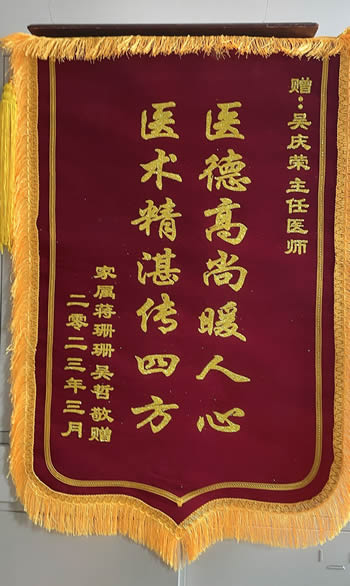 赠：吴庆荣主任医师
医德高尚暖人心
医术精湛传四方
家属蒋珊珊吴哲敬赠
二零二三年三月